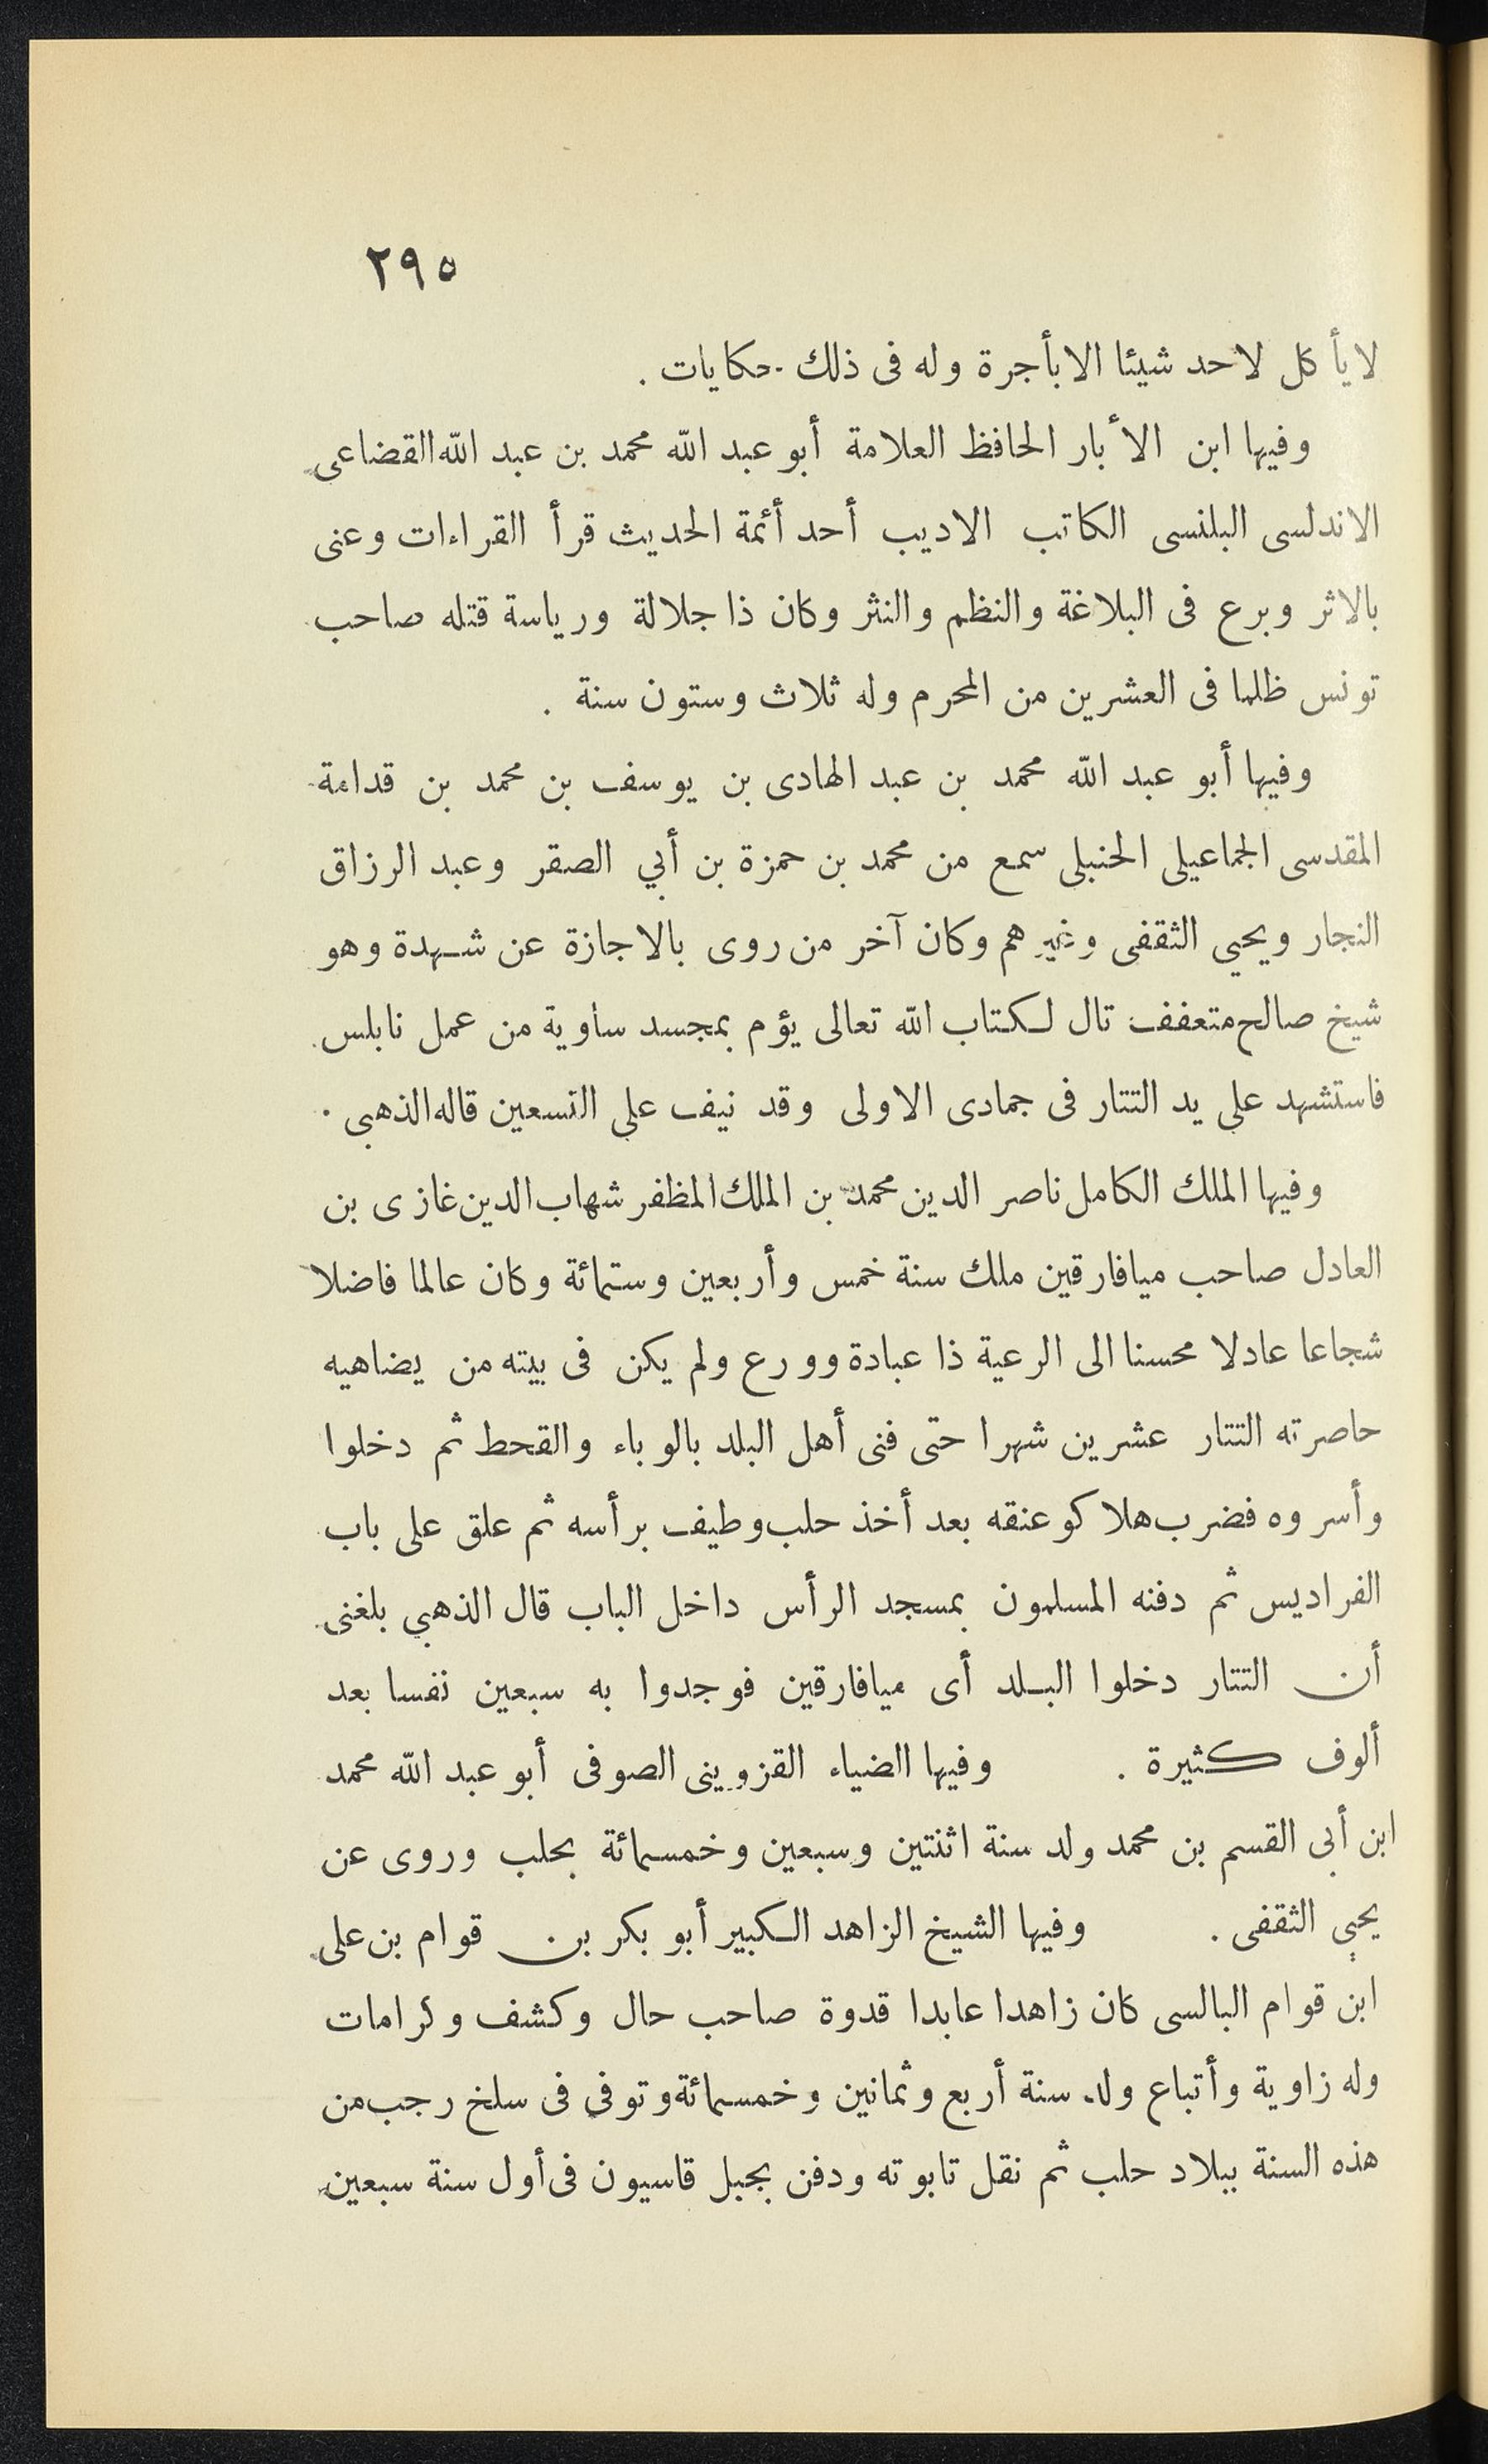 ٢٩٥
لا يأكل لاحد شيئا الا بأجرة وله فى ذلك حكايات .
وفيها ابن الأبار الحافظ العلامة أبو عبد الله محمد بن عبد الله القضاعى
الاندلسى البلنسى الكاتب الاديب أحد أئمة الحديث قرأ القراءات وعنى
بالاثر وبرع فى البلاغة والنظم والنثر وكان ذا جلالة ورياسة قتله صاحب
تونس ظلما فى العشرين من المحرم وله ثلاث وستون سنة .
وفيها أبو عبد الله محمد بن عبد الهادى بن يوسف بن محمد بن قدامة
المقدسى الجماعيلى الحنبلى سمع من محمد بن حمزة بن أبي الصقر وعبد الرزاق
النجار ويحيي الثقفى وغيرهم وكان آخر من روى بالاجازة عن شهدة وهو
شيخ صالح متعفف تال لكتاب الله تعالى يؤم بمجسد ساوية من عمل نابلس
فاستشهد على يد التتار فى جمادى الاولى وقد نيف على التسعين قاله الذهبى .
وفيها الملك الكامل ناصر الدين محمد بن الملك المظفر شهاب الدين غازى بن
العادل صاحب ميافارقين ملك سنة خمس وأربعين وستمائة وكان عالما فاضلا
شجاعا عادلا محسنا الى الرعية ذا عبادة وورع ولم يكن فى بيته من يضاهيه
حاصرته التتار عشرين شهرا حتى فنى أهل البلد بالوباء والقحط ثم دخلوا
وأسروه فضرب هلاكو عنقه بعد أخذ حلب وطيف برأسه ثم علق على باب
الفراديس ثم دفنه المسلمون بمسجد الرأس داخل الباب قال الذهبي بلغنى
أن التتار دخلوا البلد أى ميافارقين فوجدوا به سبعين نفسا بعد
ألوف كثيرة . وفيها الضياء القزوينى الصوفى أبو عبد الله محمد
ابن أبى القسم بن محمد ولد سنة اثنتين وسبعين وخمسمائة بحلب وروى عن
يحيي الثقفى . وفيها الشيخ الزاهد الكبير أبو بكر بن قوام بن على
ابن قوام البالسى كان زاهدا عابدا قدوة صاحب حال وكشف وكرامات
وله زاوية وأتباع ولد سنة أربع وثمانين وخمسمائة وتوفى فى سلخ رجب من
هذه السنة ببلاد حلب ثم نقل تابوته ودفن بجبل قاسيون فى أول سنة سبعين